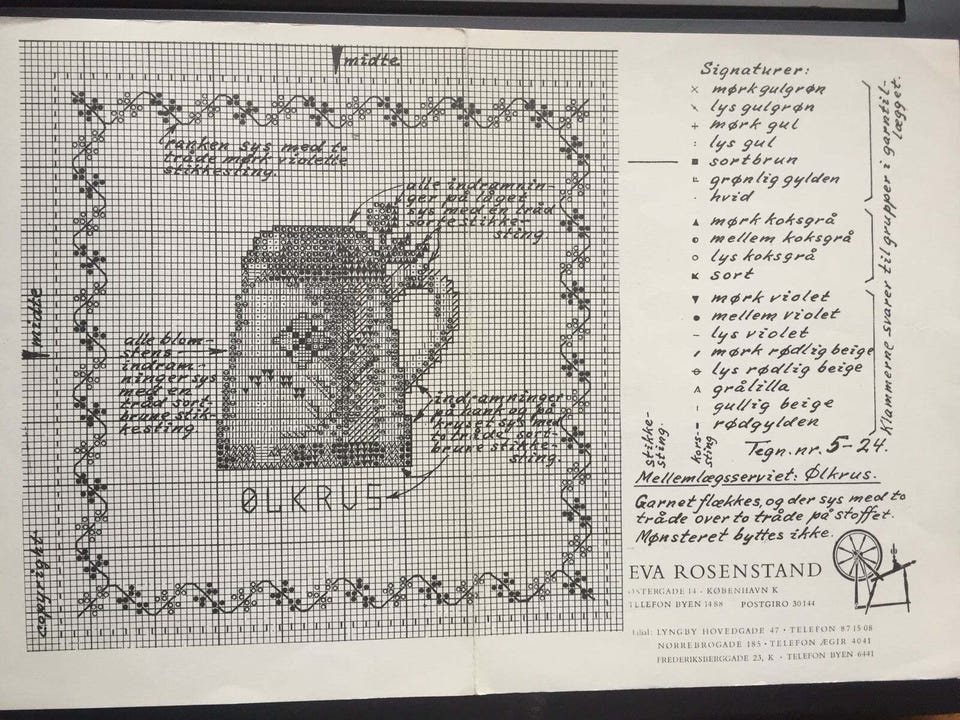 midte
ranken sys med to
tråde mørk violette
stikkesting.
alle indramnin-
ger på låget
sys med en tråd
sorte stikke-
sting
midte
alle blom-
stens-
indram-
ninger sys
med en
tråd sort-
brune stik-
kesting.
indramninger
på hank og på
kruset sys med
to tråde sort-
brune stikke-
sting.
ØLKRUS
Signaturer:
× mørk gulgrøn
lys gulgrøn
+ mørk gul
: lys gul
■ sortbrun
grønlig gylden
· hvid
▲ mørk koksgrå
mellem koksgrå
○ lys koksgrå
sort
▼ mørk violet
● mellem violet
– lys violet
mørk rødlig beige
lys rødlig beige
grålilla
gullig beige
rødgylden
Klammerne svarer til grupper i garntil-
lægget.
stikke-
sting.
kors-
sting
Tegn.nr. 5-24.
Mellemlægsserviet: Ølkrus.
Garnet flækkes, og der sys med to
tråde over to tråde på stoffet.
Mønsteret byttes ikke.
EVA ROSENSTAND
ØSTERGADE 14 · KØBENHAVN K
TELEFON BYEN 1488 POSTGIRO 30144
Filial: LYNGBY HOVEDGADE 47 · TELEFON 87 15 08
NØRREBROGADE 185 · TELEFON ÆGIR 4041
FREDERIKSBERGGADE 23, K · TELEFON BYEN 6441